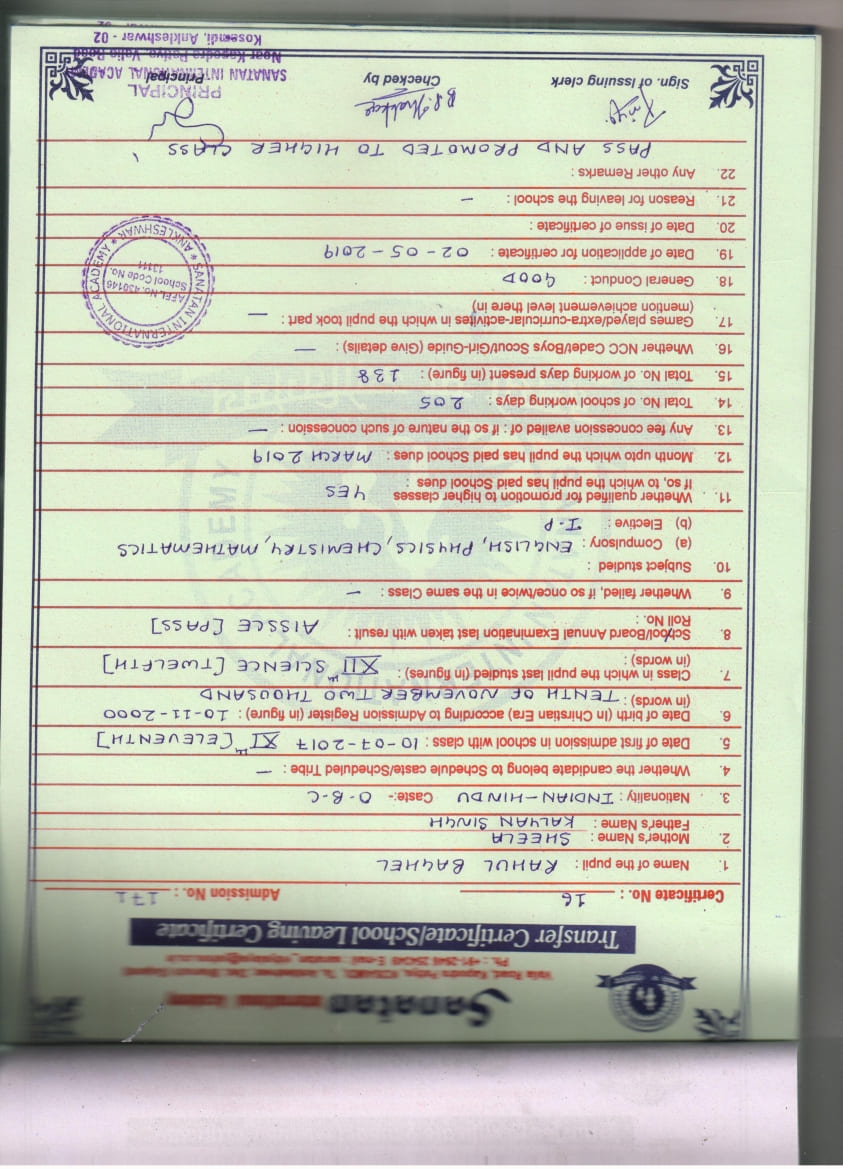 Sanatan International Academy
Transfer Certificate/School Leaving Certificate
Certificate No. : 16 Admission No. : 171
1. Name of the pupil : RAHUL BAGHEL
2. Mother's Name : SHEELA
Father's Name : KALYAN SINGH
3. Nationality : INDIAN-HINDU Caste:- O-B-C
4. Whether the candidate belong to Schedule caste/Scheduled Tribe : —
5. Date of first admission in school with class : 10-07-2017 XIth [ELEVENTH]
6. Date of birth (In Chirstian Era) according to Admission Register (in figure) : 10-11-2000
(in words) : TENTH OF NOVEMBER TWO THOUSAND
7. Class in which the pupil last studied (in figures) : XIIth SCIENCE [TWELFTH]
(in words) :
8. School/Board Annual Examination last taken with result : AISSCE [PASS]
Roll No. :
9. Whether failed, if so once/twice in the same Class : —
10. Subject studied :
(a) Compulsory : ENGLISH, PHYSICS, CHEMISTRY, MATHEMATICS
(b) Elective : I.P
11. Whether qualified for promotion to higher classes YES
If so, to which the pupil has paid School dues :
12. Month upto which the pupil has paid School dues : MARCH 2019
13. Any fee concession availed of : if so the nature of such concession : —
14. Total No. of school working days : 205
15. Total No. of working days present (in figure) : 138
16. Whether NCC Cadet/Boys Scout/Girl-Guide (Give details) : —
17. Games played/extra-curricular-activites in which the pupil took part : —
(mention achievement level there in)
18. General Conduct : GOOD
19. Date of application for certificate : 02-05-2019
20. Date of issue of certificate :
21. Reason for leaving the school : —
22. Any other Remarks :
PASS AND PROMOTED TO HIGHER CLASS
SANATAN INTERNATIONAL ACADEMY
ANKLESHWAR
AFFI. No. 430146
School Code No.
13111
Sign. of Issuing clerk Checked by Principal
PRINCIPAL
SANATAN INTERNATIONAL ACADEMY
Kosamdi, Ankleshwar - 02